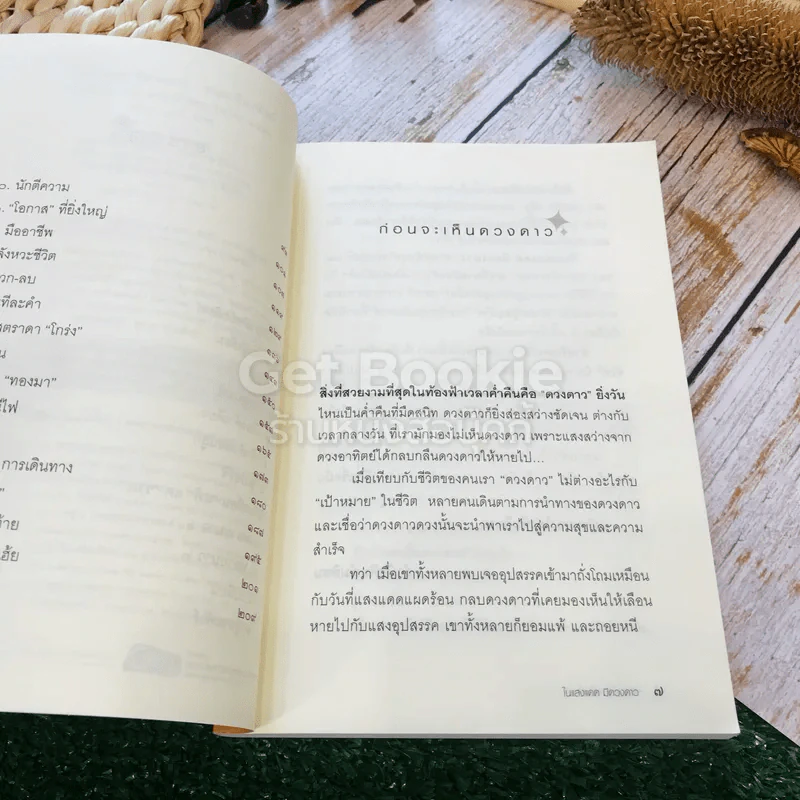 ๐. นักตีความ
. “โอกาส” ที่ยิ่งใหญ่
มืออาชีพ
ังหวะชีวิต
วก-ลบ
ทีละคำ
สตราดา “โกร่ง”
น
“ทองมา”
ไฟ
การเดินทาง
”
้าย
เฮ้ย
๑๖๕
๑๗๓
๑๘๐
๑๘๗
๑๙๕
๒๐๑
๒๐๙
ก่อนจะเห็นดวงดาว
Get Bookie
ร้านหนังสือเกด
สิ่งที่สวยงามที่สุดในท้องฟ้าเวลาค่ำคืนคือ “ดวงดาว” ยิ่งวัน
ไหนเป็นค่ำคืนที่มืดสนิท ดวงดาวก็ยิ่งส่องสว่างชัดเจน ต่างกับ
เวลากลางวัน ที่เรามักมองไม่เห็นดวงดาว เพราะแสงสว่างจาก
ดวงอาทิตย์ได้กลบกลืนดวงดาวให้หายไป...
เมื่อเทียบกับชีวิตของคนเรา “ดวงดาว” ไม่ต่างอะไรกับ
“เป้าหมาย” ในชีวิต หลายคนเดินตามการนำทางของดวงดาว
และเชื่อว่าดวงดาวดวงนั้นจะนำพาเราไปสู่ความสุขและความ
สำเร็จ
ทว่า เมื่อเขาทั้งหลายพบเจออุปสรรคเข้ามาถั่งโถมเหมือน
กับวันที่แสงแดดแผดร้อน กลบดวงดาวที่เคยมองเห็นให้เลือน
หายไปกับแสงอุปสรรค เขาทั้งหลายก็ยอมแพ้ และถอยหนี
ในแสงแดด มีดวงดาว ๗